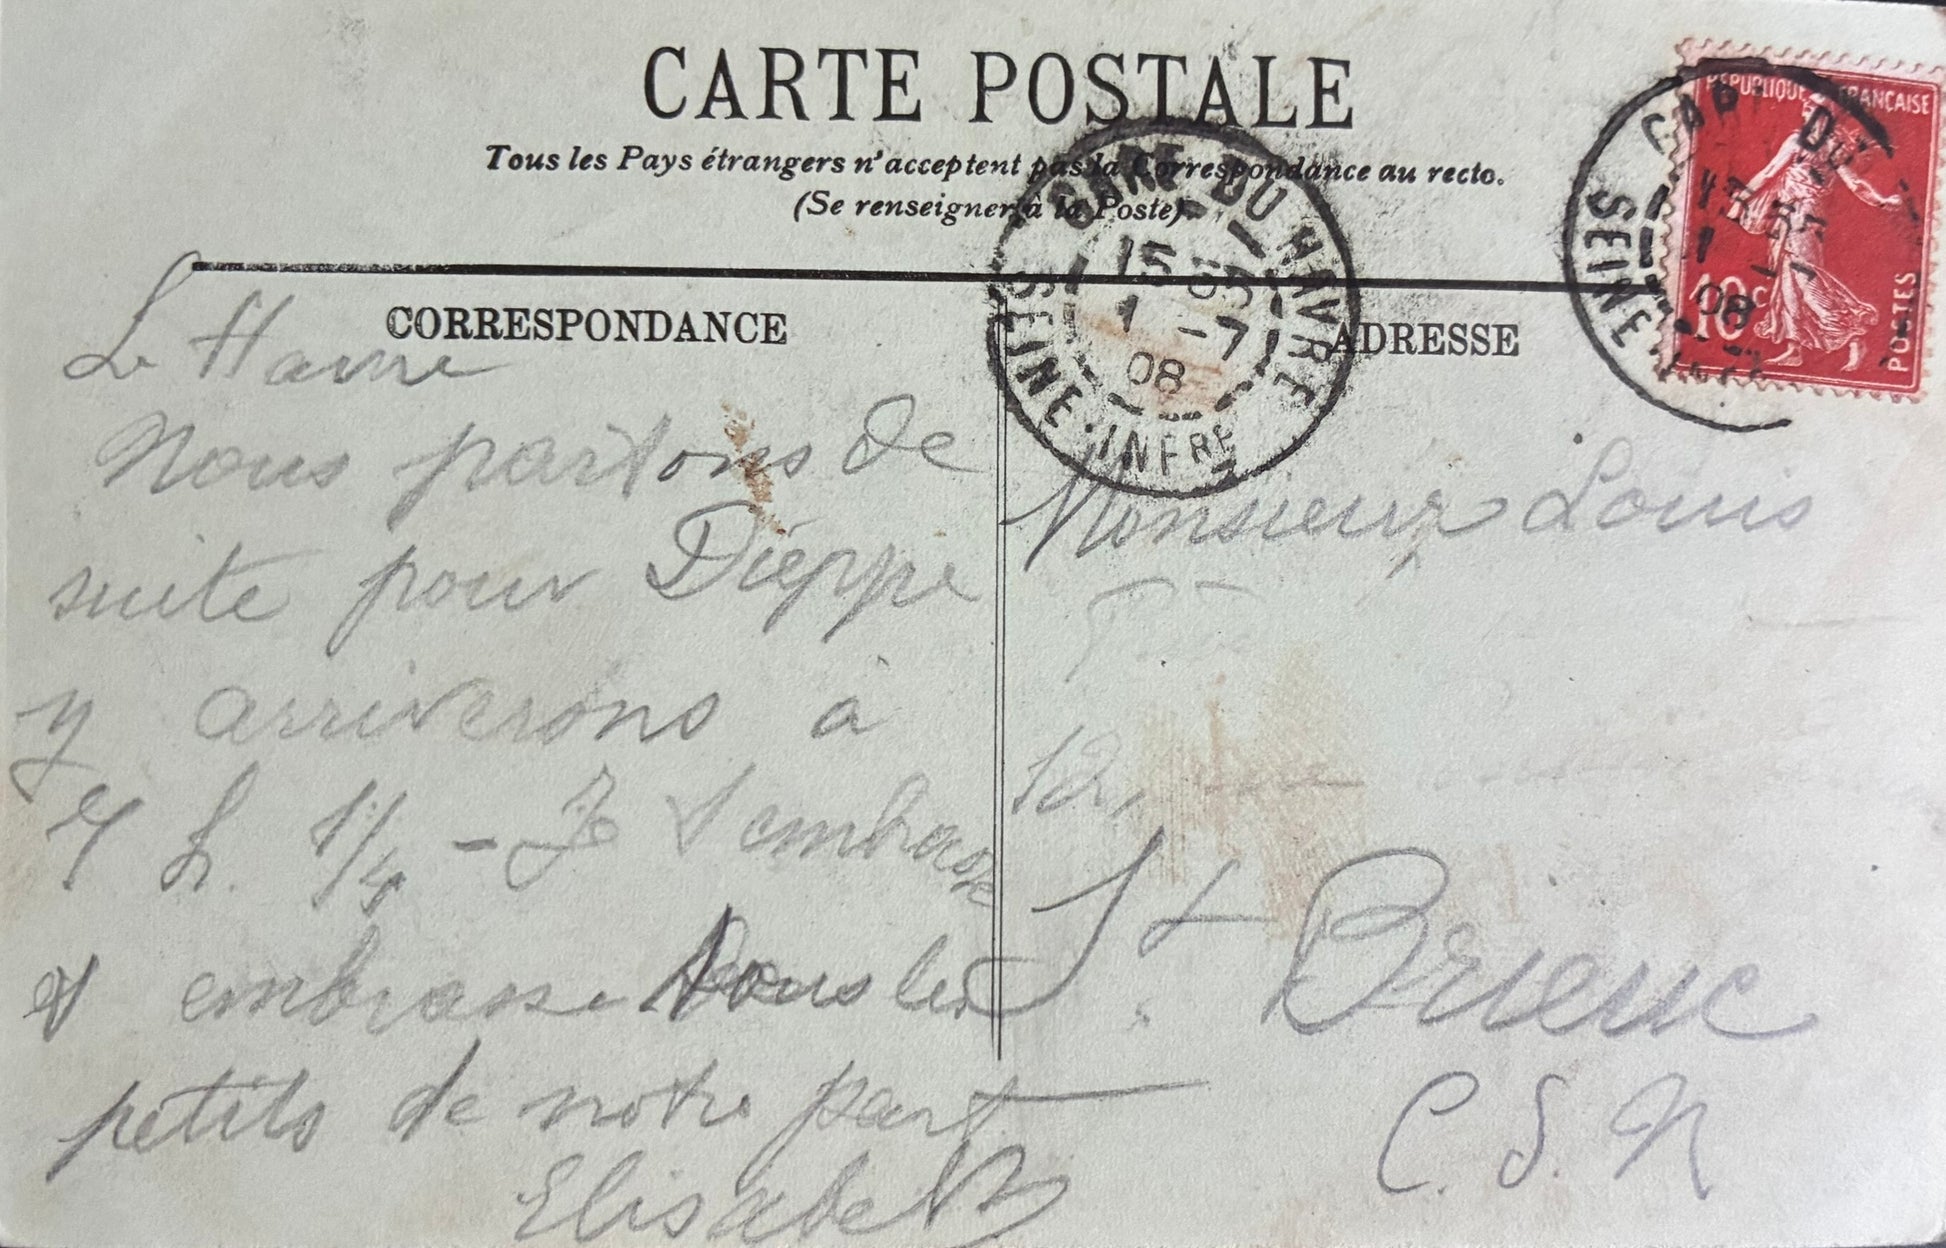 CARTE POSTALE
Tous les Pays étrangers n'acceptent pas la Correspondance au recto.
(Se renseigner à la Poste).
RÉPUBLIQUE FRANÇAISE
10c
POSTES
SEINE
08
GARE DU HAVRE
15 35
1 -7
08
SEINE-INFRE
CORRESPONDANCE
Le Havre
Nous partons de
suite pour Dieppe
y arriverons à
7 h. 1/4 - Je t'embrasse
et embrasse tous les
petits de notre part
Elisabeth
ADRESSE
Monsieur Louis
12,
St. Brieuc
C. d. N